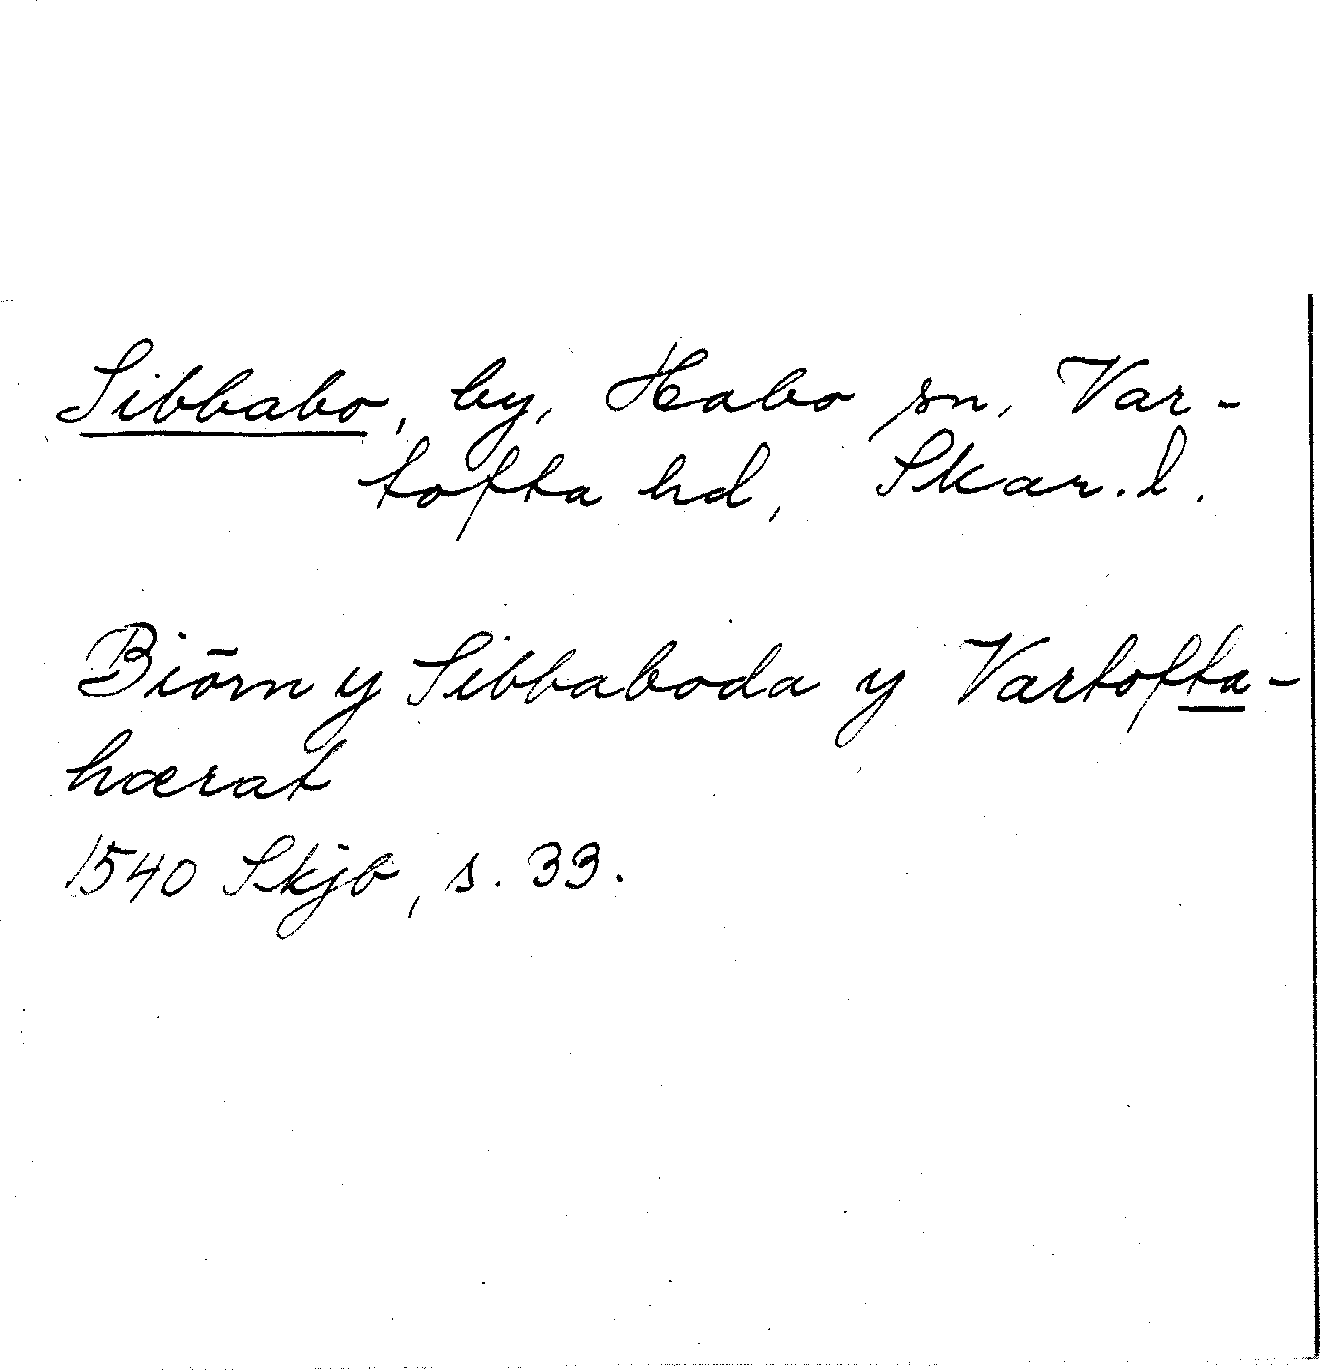 Sibbabo, by, Habo sn, Var-
tofta hd, Skar. l.
Biōrn y Sibbaboda y Vartofta-
hærat
1540 Skjb, s. 33.